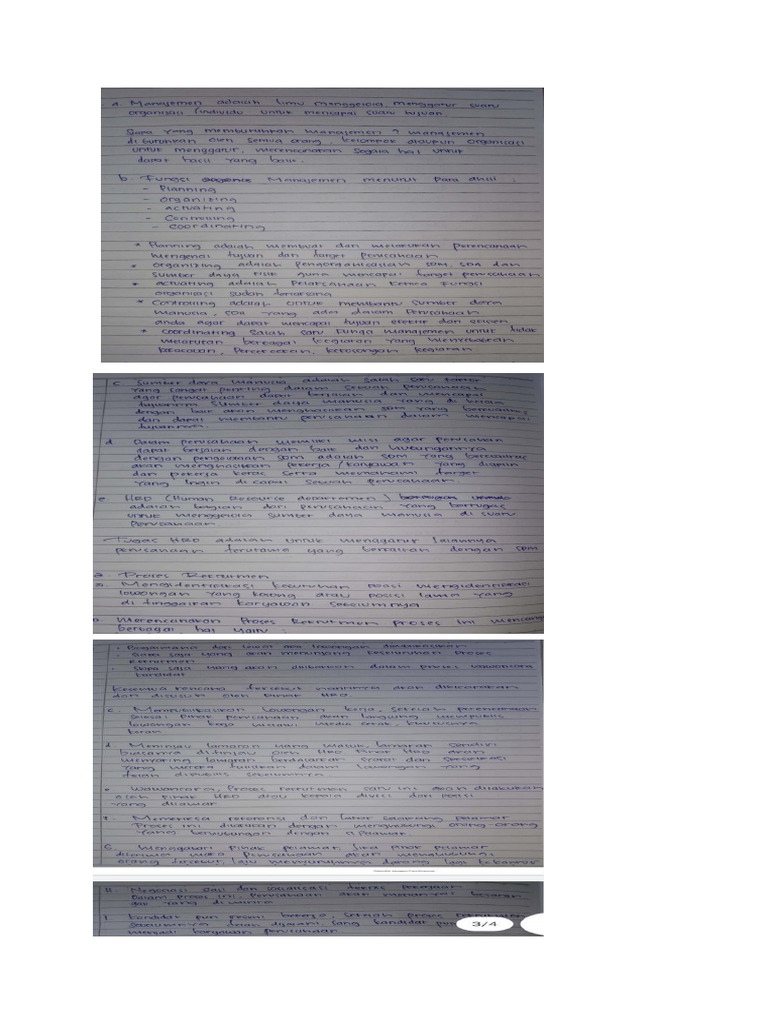 a. Manajemen adalah ilmu mengelola, menggatur suatu
organisasi / individu untuk mencapai suatu tujuan
Siapa yang membutuhkan manajemen ? manajemen
di butuhkan oleh semua orang, kelompok ataupun organisasi
untuk menggatur, merencanakan segala hal untuk
dapat hasil yang baik.
b. Fungsi Manajemen menurut para ahli :
- Planning
- Organizing
- Actuating
- Controlling
- Coordinating
* Planning adalah membuat dan melakukan perencanaan
mengenai tujuan dan target perusahaan
* Organizing adalah pengorganisasian SDM, SDA dan
sumber daya fisik guna mencapai target perusahaan
* Actuating adalah pelaksanaan ketika fungsi
organisasi sudah
* Controlling adalah untuk membantu sumber daya
manusia, SDA yang ada dalam perusahaan
anda agar dapat mencapai tujuan efektif dan efisien
* Coordinating salah satu fungsi manajemen untuk tidak
melakukan berbagai kegiatan yang menyebabkan
kekacauan, percekcokan, kekosongan kegiatan
c. Sumber daya manusia adalah salah satu faktor
yang sangat penting dalam sebuah perusahaan
agar perusahaan dapat berjalan dan mencapai
tujuannya. Sumber daya manusia yang di kelola
dengan baik akan menghasilkan SDM yang berkualitas
dan dapat membantu perusahaan dalam mencapai
tujuannya.
d. Dalam perusahaan memiliki misi agar perusahaan
dapat berjalan dengan baik dan hubungannya
dengan pengelolaan SDM adalah SDM yang berkualitas
akan menghasilkan pekerja / karyawan yang disiplin
dan pekerja keras serta memahami target
yang ingin di capai sebuah perusahaan.
e. HRD (Human Resource departemen)
adalah bagian dari perusahaan yang bertugas
untuk mengelola sumber daya manusia di suatu
perusahaan.
Tugas HRD adalah untuk menggatur jalannya
perusahaan terutama yang berkaitan dengan SDM
2. Proses Rekrutmen
a. Mengidentifikasi kebutuhan posisi mengidentifikasi
lowongan yang kosong atau posisi lama yang
di tinggalkan karyawan sebelumnya
b. Merencanakan Proses Rekrutmen proses ini
berbagai hal yaitu :
. Bagaimana dan lewat apa lowongan
. Siapa saja yang akan Proses
Rekrutmen
. Siapa saja yang akan dilibatkan dalam proses wawancara
kandidat
rencana tersebut nantinya akan
dan disusun oleh pihak HRD.
c. Mempublikasikan lowongan kerja, setelah
selesai pihak perusahaan akan langsung
lowongan kerja melalui media cetak,
koran
d. Meninjau lamaran yang masuk, lamaran sendiri
biasanya ditinjau oleh HRD pihak HRD akan
lamaran berdasarkan syarat dan spesifikasi
yang mereka tuliskan dalam lowongan yang
telah di publis sebelumnya
e. Wawancara, Proses recruitmen satu ini akan dilakukan
oleh pihak HRD atau kepala divisi dari posisi
yang dilamar
f. Memeriksa referensi dan latar belakang pelamar
Proses ini dilakukan dengan menghubungi orang-orang
yang berhubungan dengan si pelamar.
G. Mengabari pihak pelamar jika pihak pelamar
diterima maka perusahaan akan menghubungi
orang tersebut, lalu
H. Negosiasi gaji dan sosialisasi pekerjaan
Dalam proses ini, perusahaan akan
gaji yang di
I. Kandidat pun resmi bekerja, setelah proses
sebelumnya telah sang kandidat pun
menjadi karyawan perusahaan.
3/4